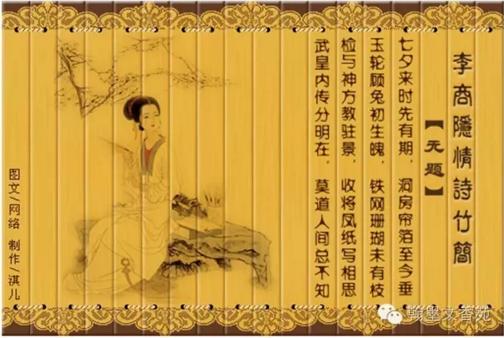 李商隱情詩竹簡
【无题】
七夕来时先有期，洞房帘箔至今垂
玉轮顾兔初生魄，铁网珊瑚未有枝
检与神方教驻景，收将凤纸写相思
武皇内传分明在，莫道人间总不知
图文/网络 制作/淇儿
翰墨文香苑